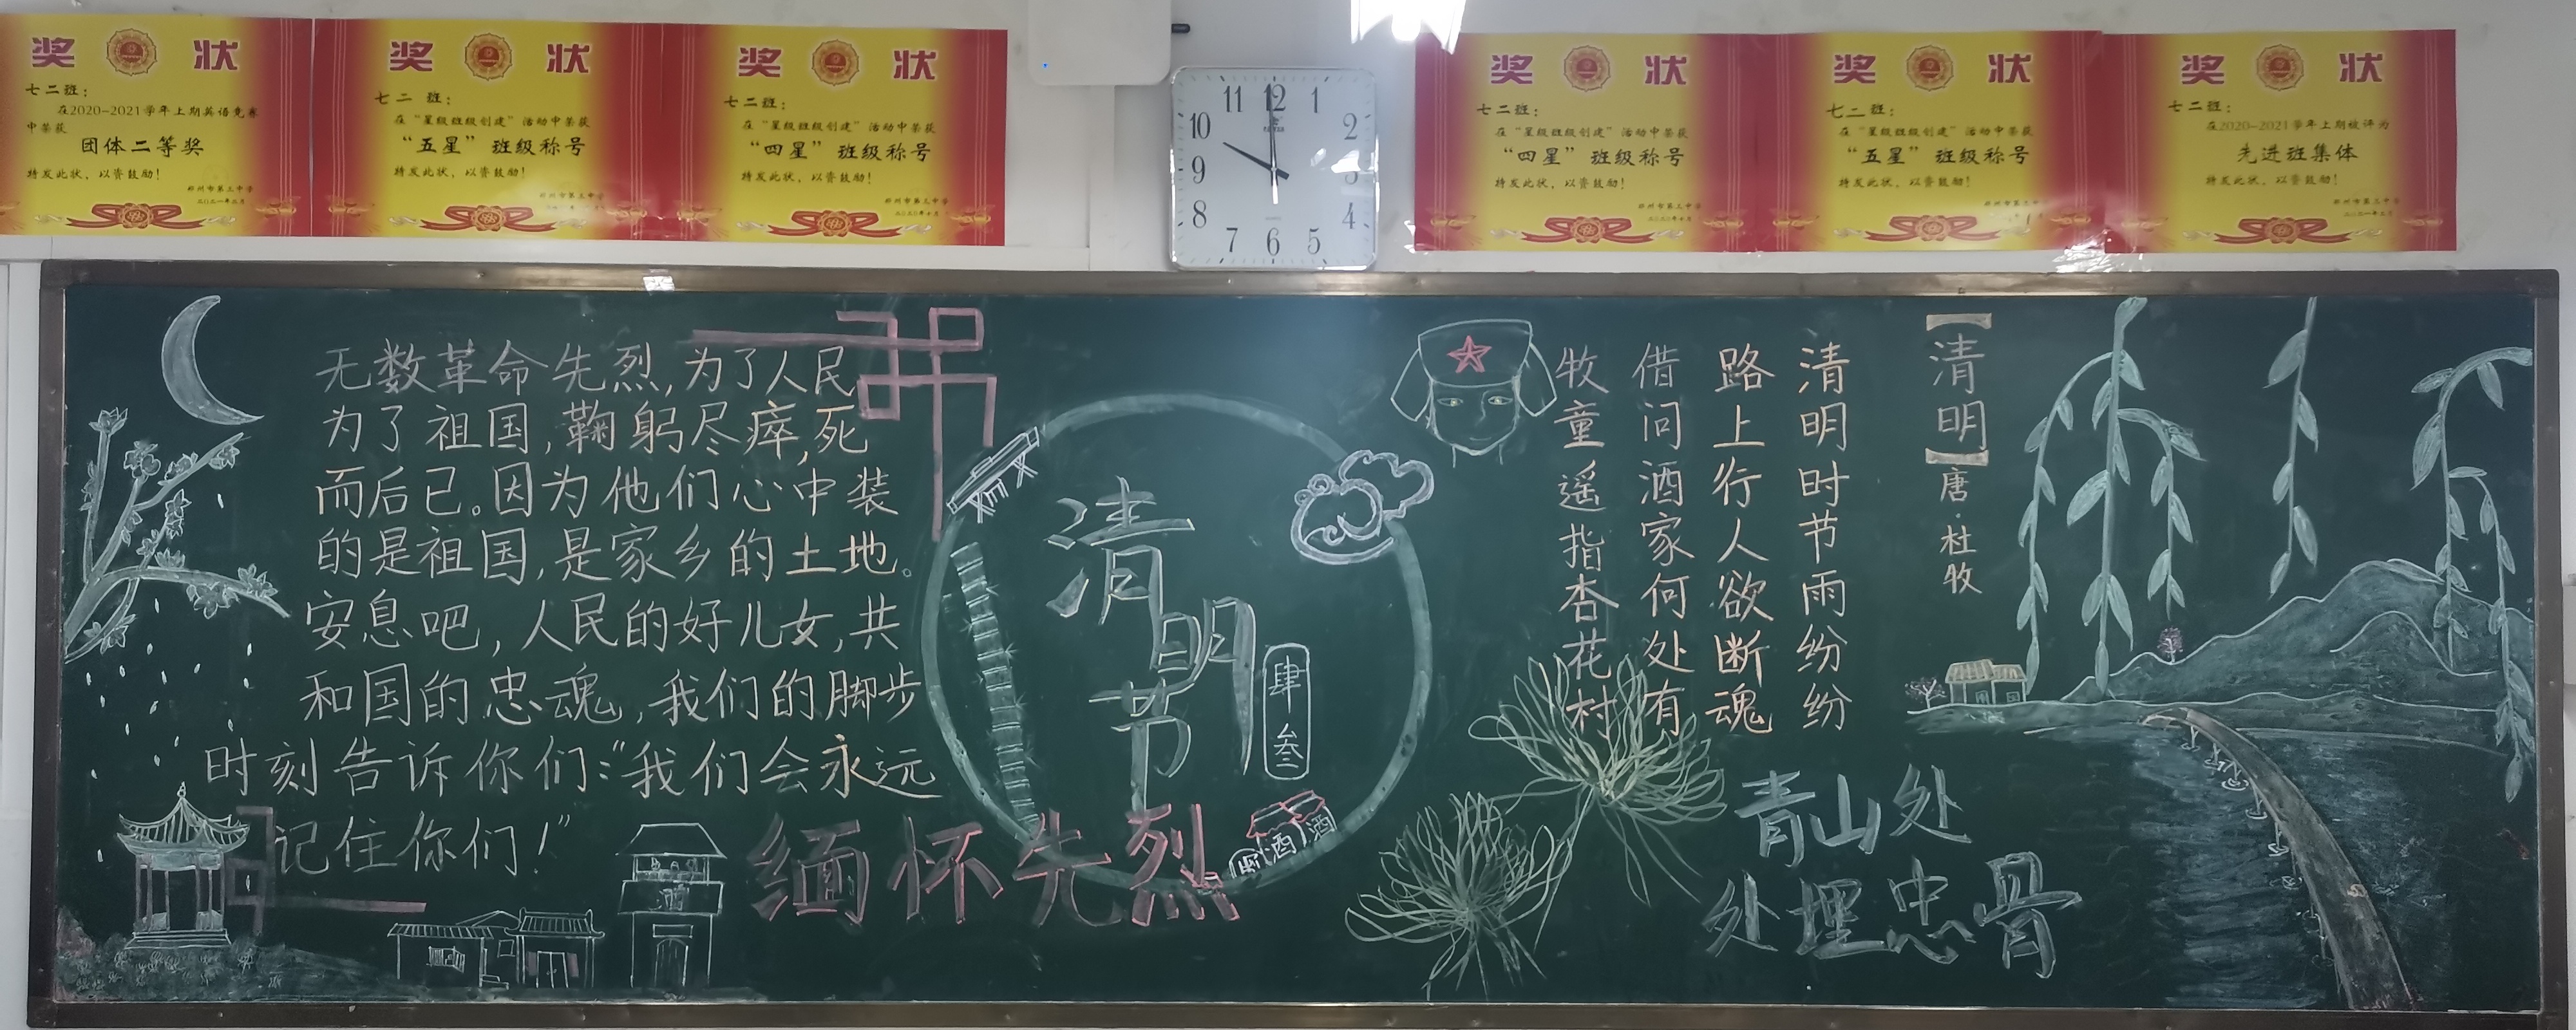 奖 状
七二班：
在2020-2021学年上期英语竞赛
中荣获
团体二等奖
特发此状，以资鼓励！
郑州市第三中学
二〇二一年三月
奖 状
七二 班：
在“星级班级创建”活动中荣获
“五星” 班级称号
特发此状，以资鼓励！
郑州市第三中学
奖 状
七二班：
在“星级班级创建”活动中荣获
“四星” 班级称号
特发此状，以资鼓励！
郑州市第三中学
二〇二〇年十月
11 12 1
10 2
9 3
8 4
7 6 5
奖 状
七二班：
在“星级班级创建”活动中荣获
“四星” 班级称号
特发此状，以资鼓励！
郑州市第三中学
奖 状
七二班：
在“星级班级创建”活动中荣获
“五星” 班级称号
特发此状，以资鼓励！
郑州市第三中学
奖 状
七二班：
在2020-2021学年上期被评为
先进班集体
特发此状，以资鼓励！
郑州市第三中学
二〇二一年三月
无数革命先烈,为了人民
为了祖国,鞠躬尽瘁,死
而后已。因为他们心中装
的是祖国,是家乡的土地。
安息吧,人民的好儿女,共
和国的忠魂,我们的脚步
时刻告诉你们:“我们会永远
记住你们!”
清明节
肆叁
酒
酒
缅怀先烈
【清明】唐·杜牧
清明时节雨纷纷
路上行人欲断魂
借问酒家何处有
牧童遥指杏花村
青山处
处埋忠骨